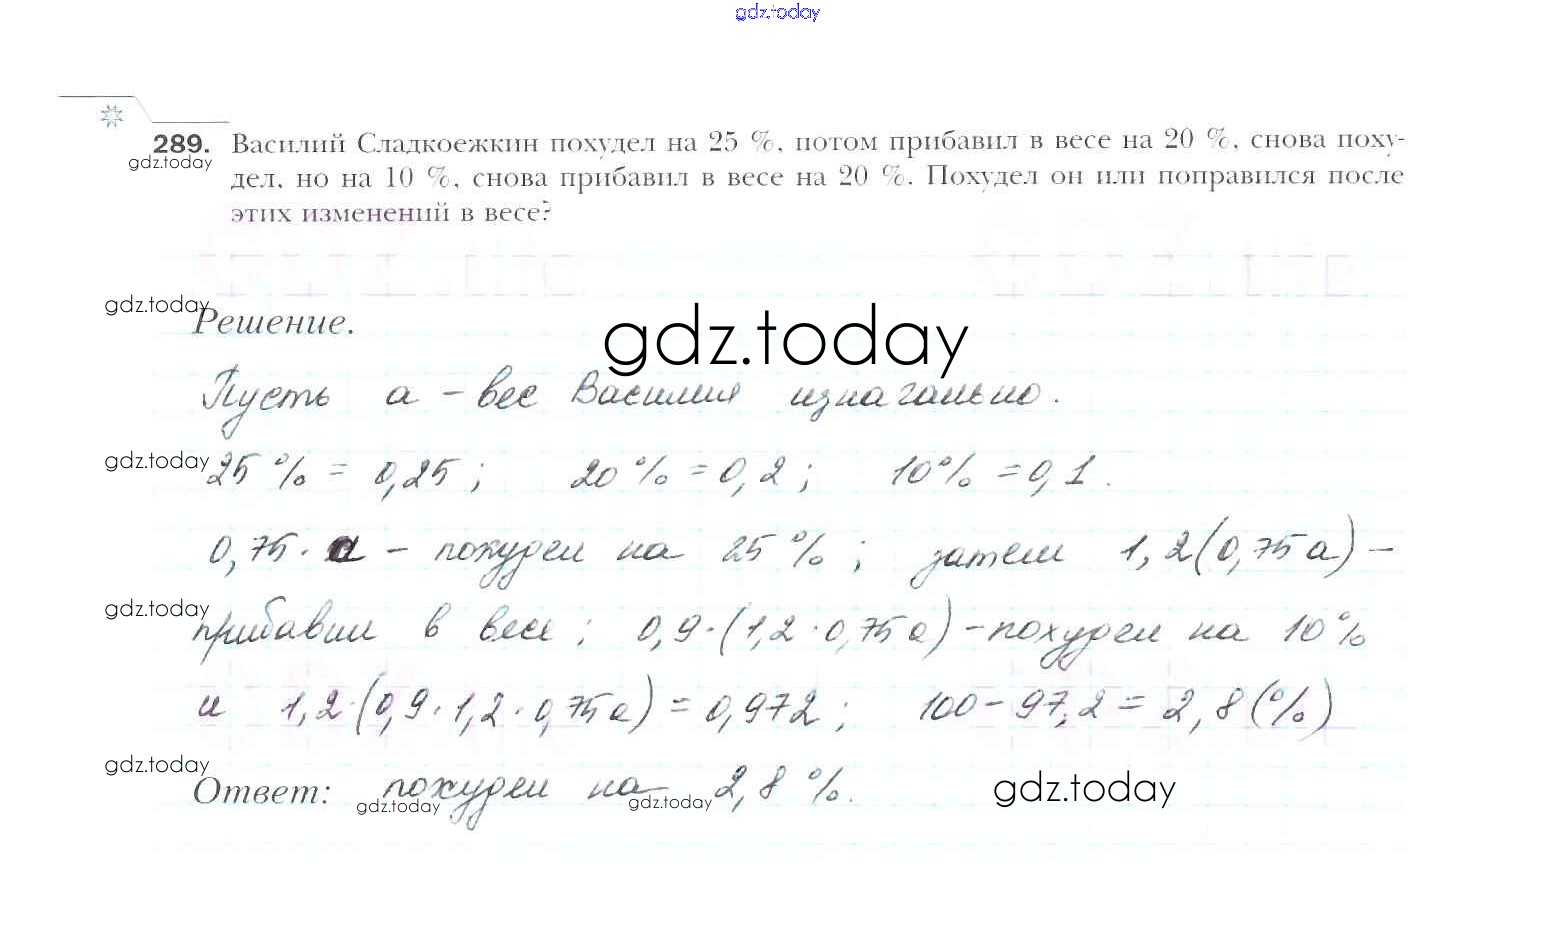 gdz.today
289. Василий Сладкоежкин похудел на 25 %, потом прибавил в весе на 20 %, снова поху-
gdz.today
дел, но на 10 %, снова прибавил в весе на 20 %. Похудел он или поправился после
этих изменений в весе?
gdz.today
Решение.
gdz.today
Пусть a – вес Василия изначально.
gdz.today
25 % = 0,25; 20 % = 0,2; 10 % = 0,1.
0,75 · a – похудел на 25 %; затем 1,2(0,75a) –
gdz.today
прибавил в весе; 0,9 · (1,2 · 0,75a) – похудел на 10 %
и 1,2 · (0,9 · 1,2 · 0,75a) = 0,972; 100 – 97,2 = 2,8 (%)
gdz.today
Ответ: похудел на 2,8 %.
gdz.today
gdz.today
gdz.today